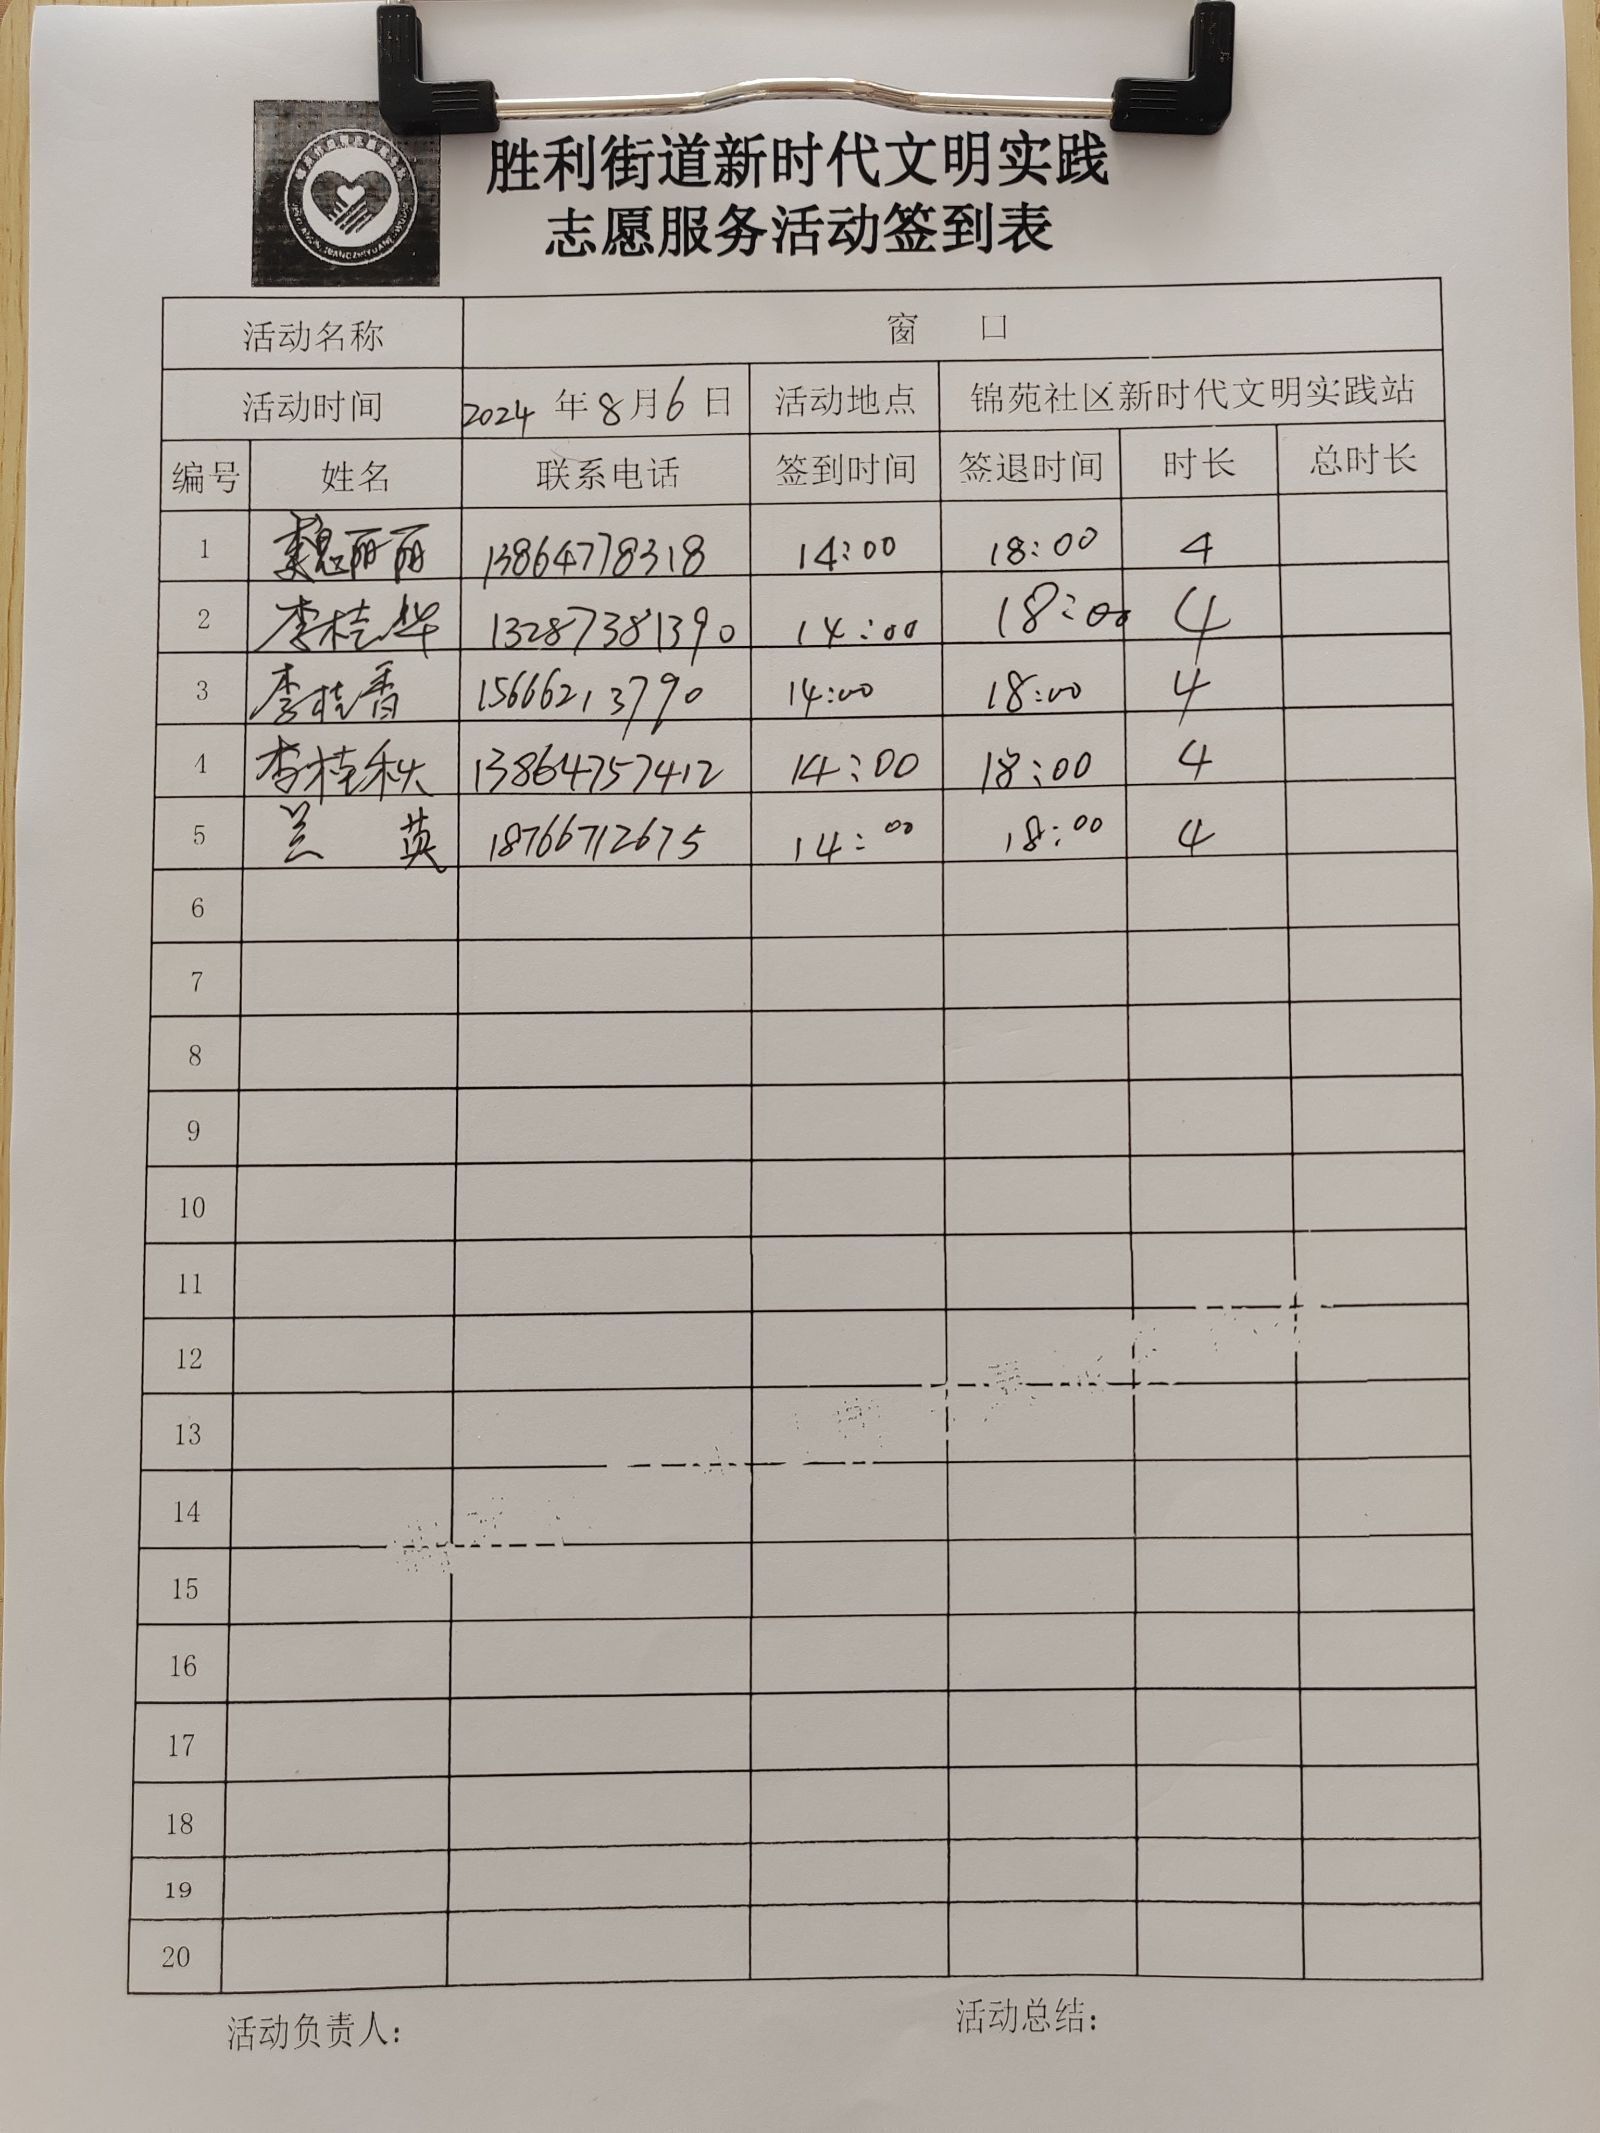 胜利街道新时代文明实践
志愿服务活动签到表
活动名称 窗 口
活动时间 2024 年 8 月 6 日 活动地点 锦苑社区新时代文明实践站
编号 姓名 联系电话 签到时间 签退时间 时长 总时长
1 魏丽丽 13864778318 14:00 18:00 4
2 李桂华 13287381390 14:00 18:00 4
3 李桂香 15666213790 14:00 18:00 4
4 李桂秋 13864757412 14:00 18:00 4
5 兰 英 18766712675 14:00 18:00 4
6
7
8
9
10
11
12
13
14
15
16
17
18
19
20
活动负责人: 活动总结: